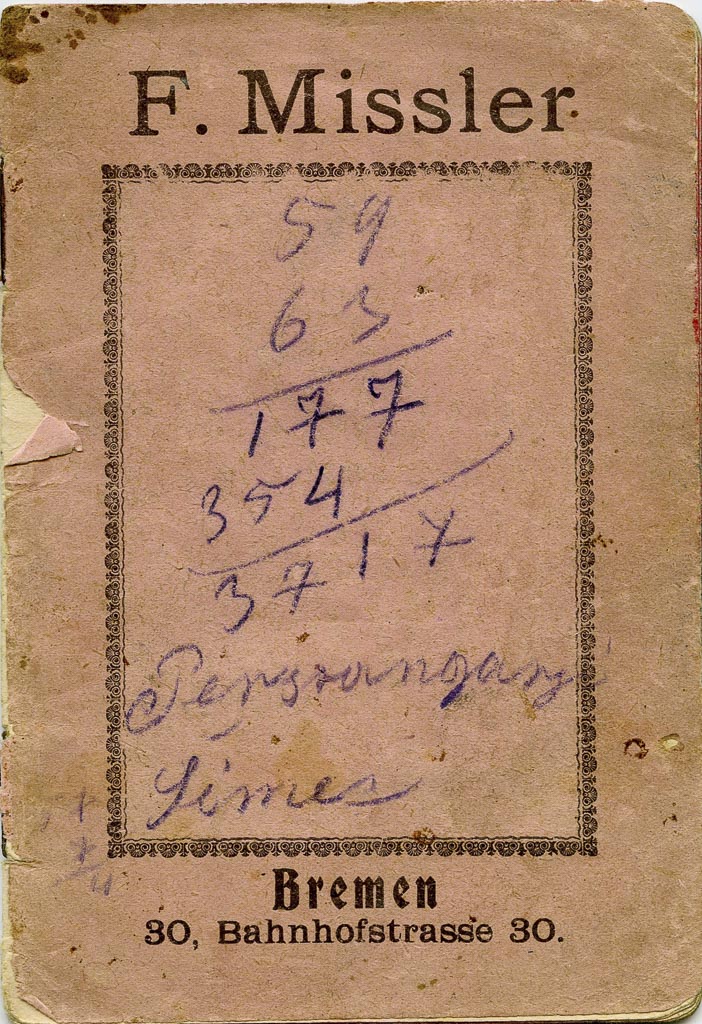 F. Missler
59
63
177
354
3717
Bremen
30, Bahnhofstrasse 30.